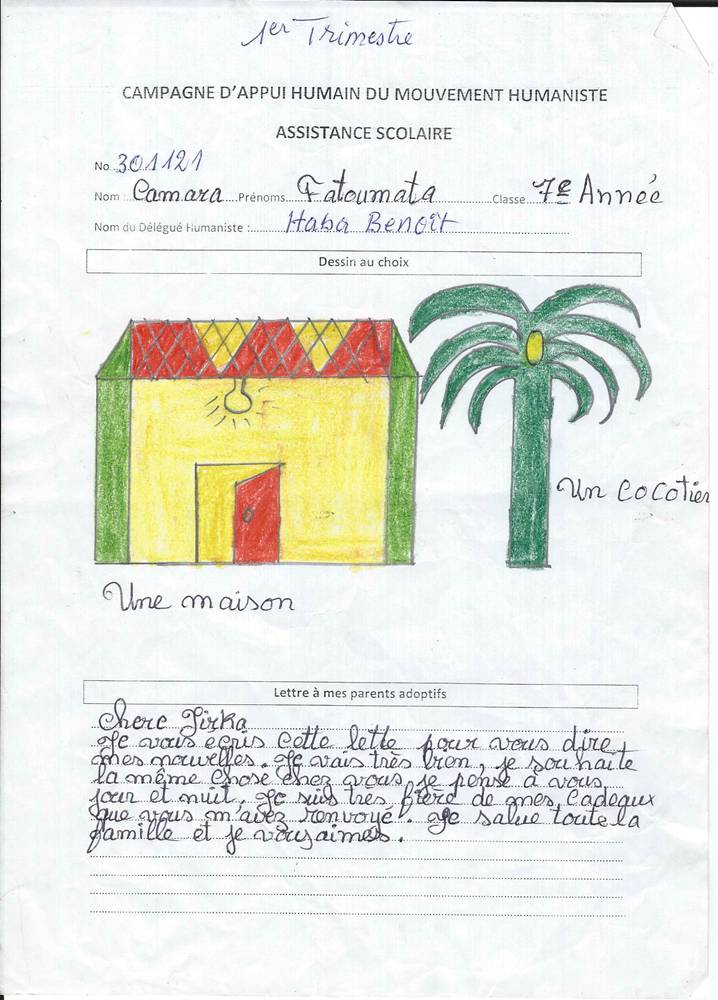 1er Trimestre
CAMPAGNE D'APPUI HUMAIN DU MOUVEMENT HUMANISTE
ASSISTANCE SCOLAIRE
No 301121
Nom : Camara Prénoms Fatoumata Classe 7e Année
Nom du Délégué Humaniste : Haba Benoît
Dessin au choix
Un cocotier
Une maison
Lettre à mes parents adoptifs
Chere Jirka
Je vous ecris cette lette pour vous dire
mes nouvelles. Je vais très bien, je souhaite
la même chose chez vous, je pense à vous
jour et nuit. Je suis très fière de mes cadeaux
que vous m'avez renvoyé. Je salue toute la
famille et je vous aimes.